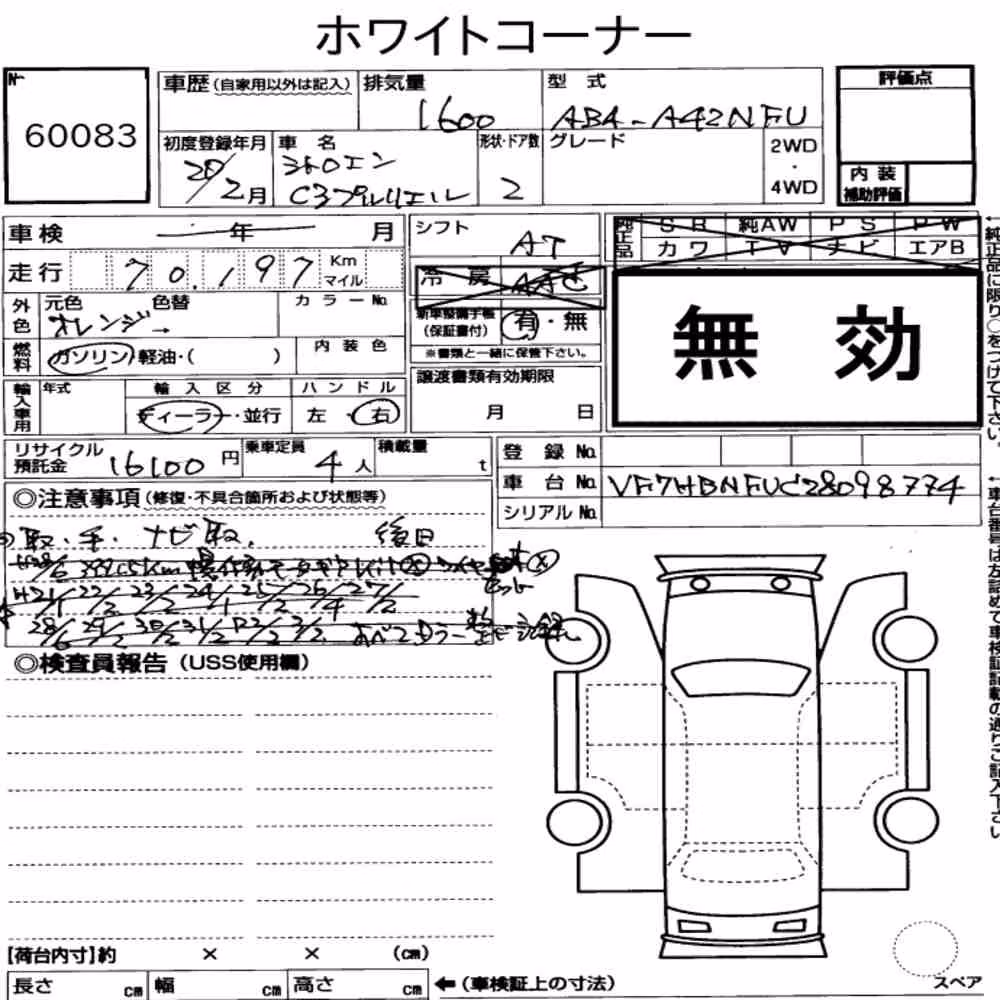 ホワイトコーナー
№
60083
車歴(自家用以外は記入)
排気量
1600
型 式
ABA-A42NFU
評価点
初度登録年月
20/2月
車 名
シトロエン
C3プルリエル
形状・ドア数
2
グレード
2WD
・
4WD
内 装
補助評価
車検 年 月
シフト
AT
純正品
S R 純AW P S P W
カワ T V ナビ エアB
走行 70,197 Km マイル
冷 房 AAC
外色
元色 色替 カラーNo.
オレンジ→
新車整備手帳
(保証書付)
有・無
※書類と一緒に保管下さい。
無 効
燃料
ガソリン・軽油・( )
内 装 色
輸入車用
年式
輸 入 区 分
ディーラー・並行
ハ ン ド ル
左・右
譲渡書類有効期限
月 日
リサイクル
預託金 16100 円
乗車定員
4人
積載量
t
登 録 No.
車 台 No. VF7HBNFUC28098774
シリアル No.
◎注意事項(修復・不具合箇所および状態等)
取・手・ナビ取. 後日
H21/1 22/2 23/2 24/1 25/2 26/4 27/2
28/6 29/2 30/2 31/2 R2/2 3/2
◎検査員報告(USS使用欄)
[荷台内寸]約 × × (cm)
長さ cm 幅 cm 高さ cm
←(車検証上の寸法)
スペア
←純正品に限り○をつけて下さい。
←車台番号は左詰めで車検証記載の通りご記入下さい